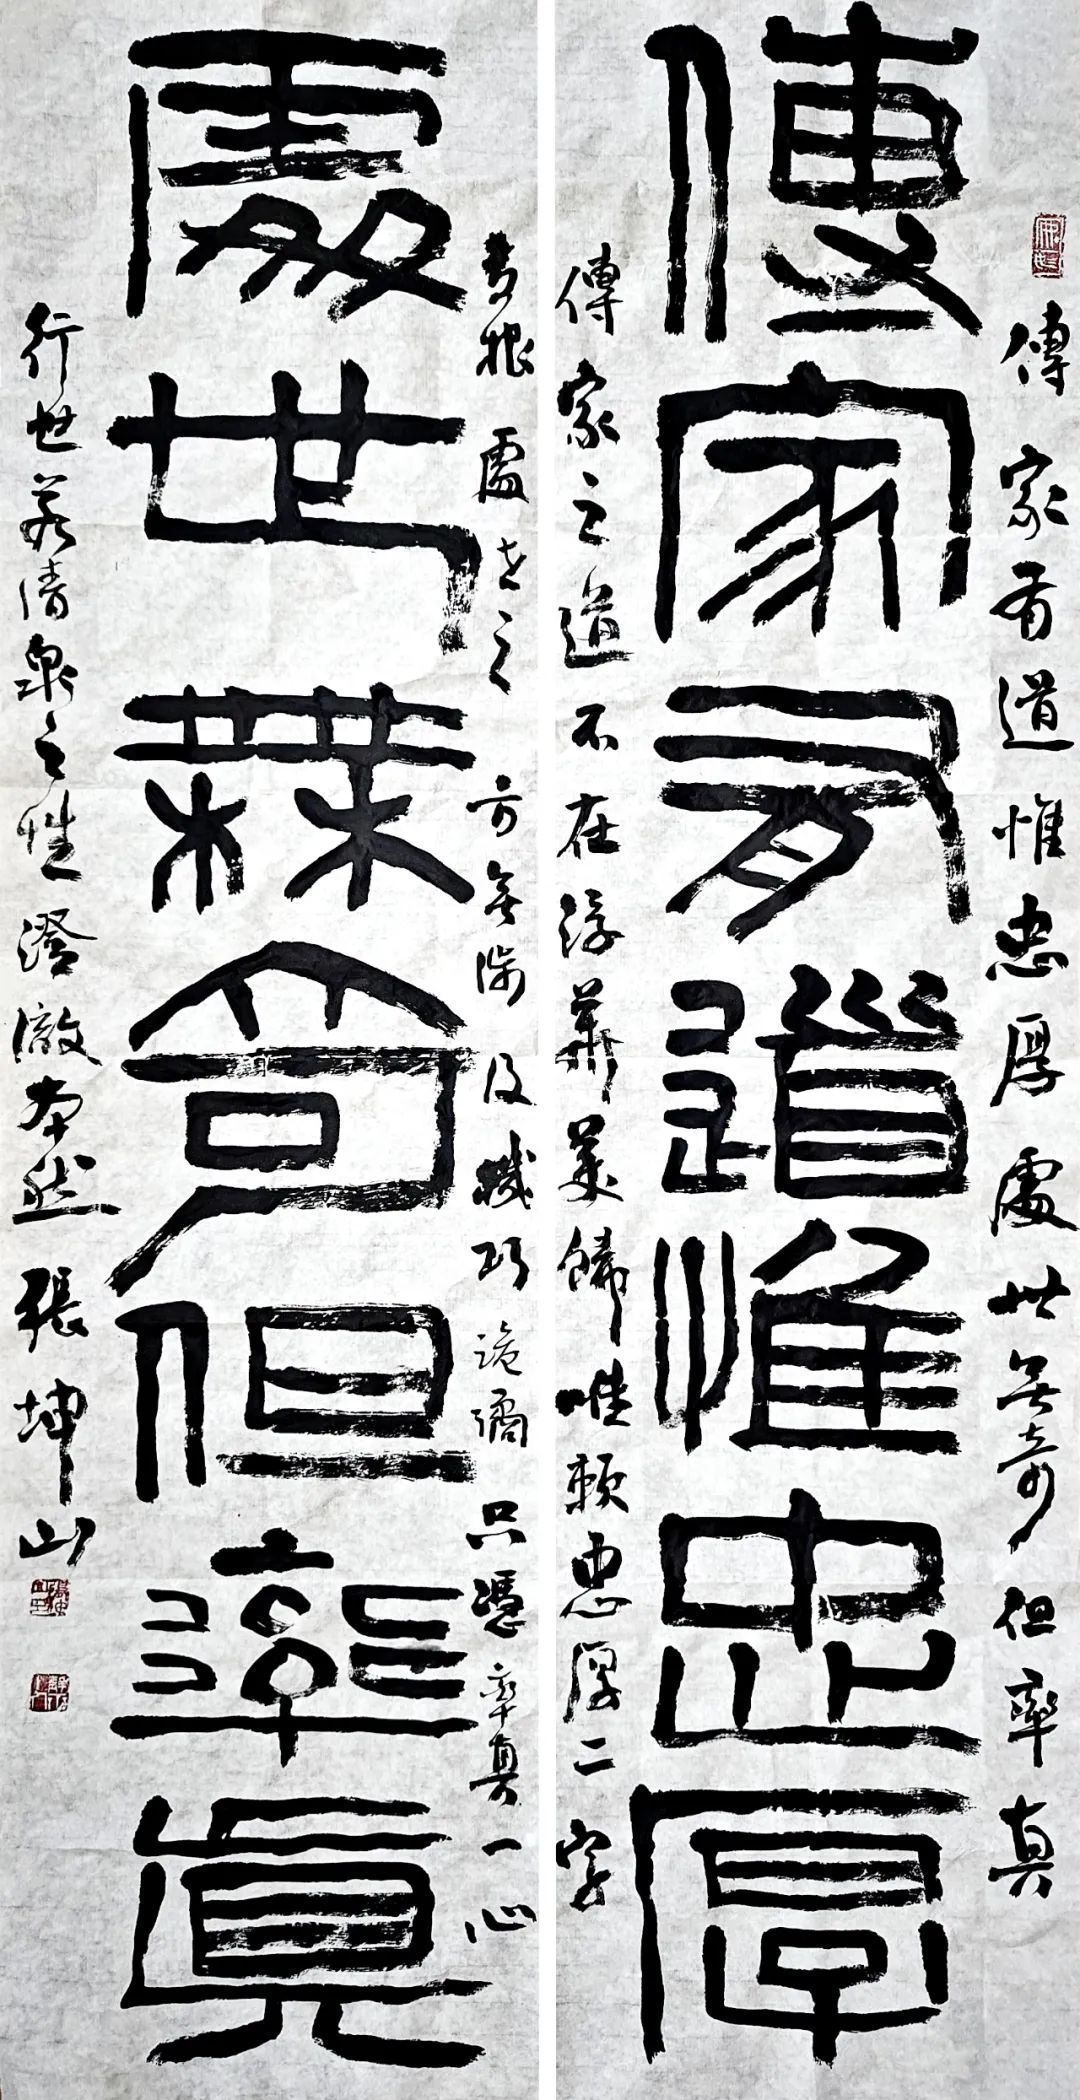 傳家有道惟忠厚處世無奇但率真
傳家有道惟忠厚
傳家之道不在浮華美飾唯賴忠厚二字
為根處世之方無機巧詭譎只憑率真一心
處世無奇但率真
行世若清泉之性澄澈本然張坤山